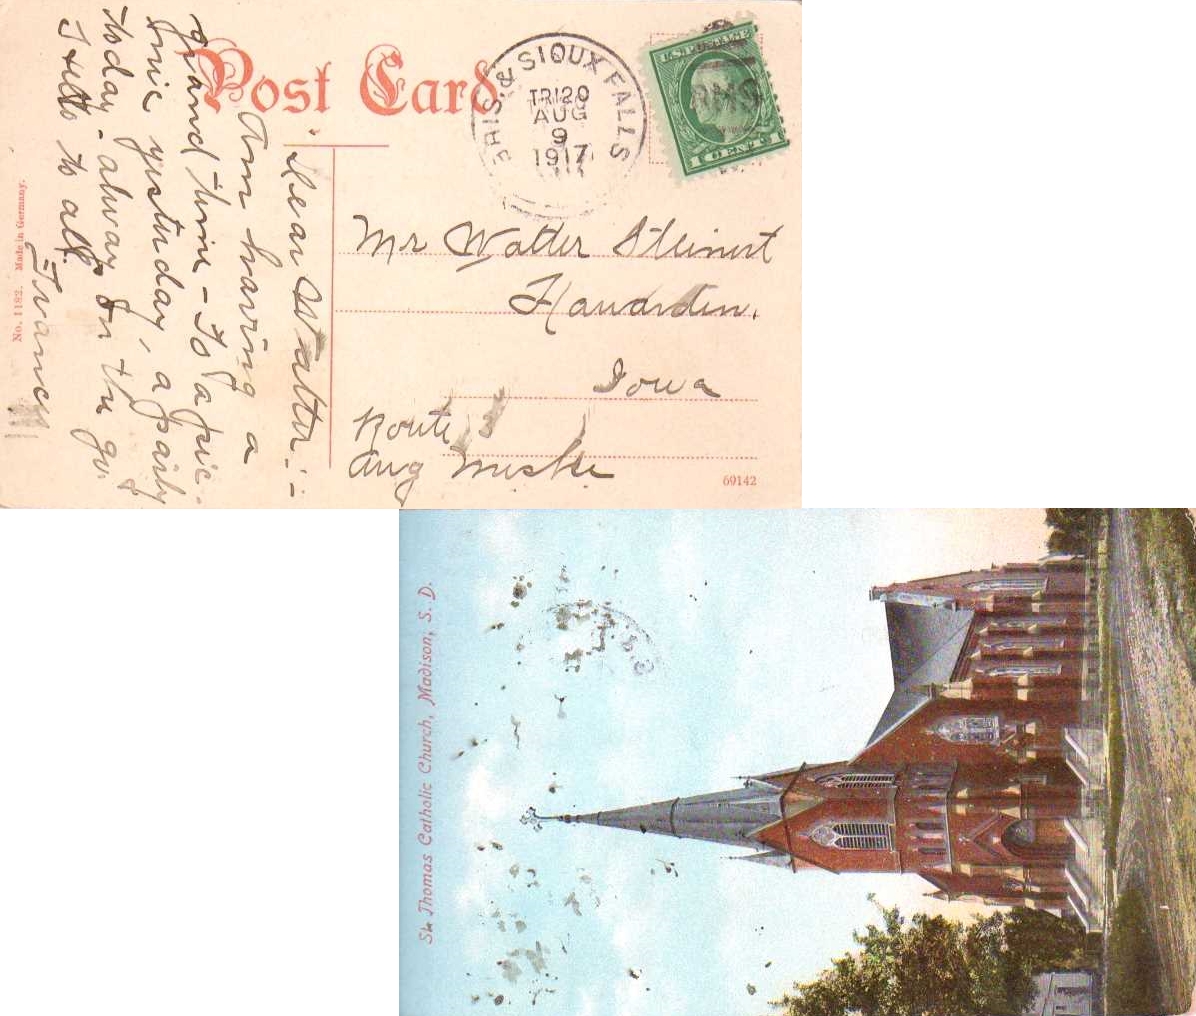 Post Card
BRIS. & SIOUX FALLS
TR120
AUG
9
1917
U.S. POSTAGE
RMS
1 CENT 1
Dear Walter:-
Am having a
grand time - To a pic-
nic yesterday, a party
today - always on the go.
Hello to all.
Mr Walter Steinert
Hawarden,
Iowa
Route 3
Aug
No. 1182. Made in Germany.
69142
St. Thomas Catholic Church, Madison, S. D.